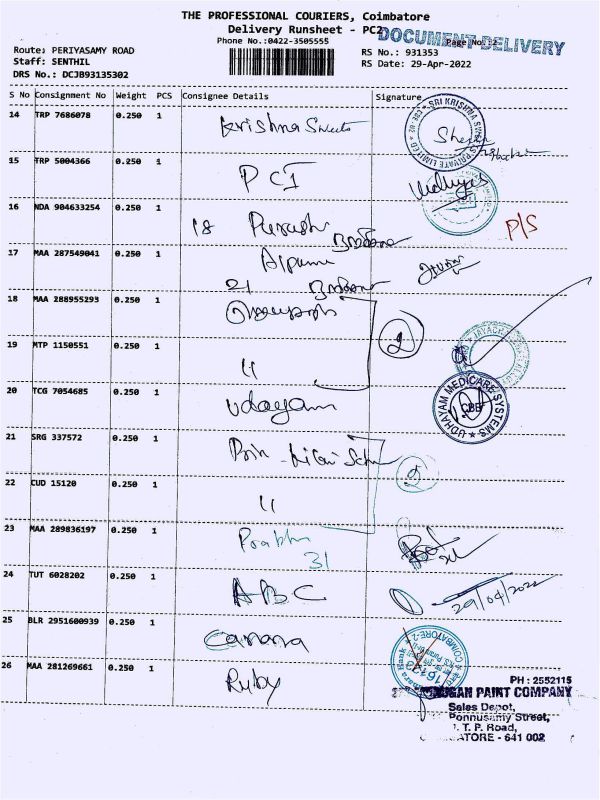 THE PROFESSIONAL COURIERS, Coimbatore
Delivery Runsheet - PC2
DOCUMENT DELIVERY
Phone No.:0422-3505555
Route: PERIYASAMY ROAD
RS No.: 931353
Staff: SENTHIL
RS Date: 29-Apr-2022
DRS No.: DCJB93135302
S No Consignment No Weight PCS Consignee Details Signature
14 TRP 7686078 0.250 1 Krishna Sweets
15 TRP 5004366 0.250 1 PCI
16 NDA 904633254 0.250 1 18
P/S
17 MAA 287549041 0.250 1
21
18 MAA 288955293 0.250 1
2
19 MTP 1150551 0.250 1 "
20 TCG 7054685 0.250 1 Udayam
UDHAYAM MEDICARE SYSTEMS
CBE
21 SRG 337572 0.250 1
2
22 CUD 15120 0.250 1 "
23 MAA 289836197 0.250 1 Prabhu
31
24 TUT 6028202 0.250 1 ABC
29/04/2022
25 BLR 2951600939 0.250 1 Canara
COIMBATORE-2
26 MAA 281269661 0.250 1 Ruby
PH : 2552115
PAINT COMPANY
Sales Depot,
Ponnusamy Street,
T. P. Road,
- 641 002